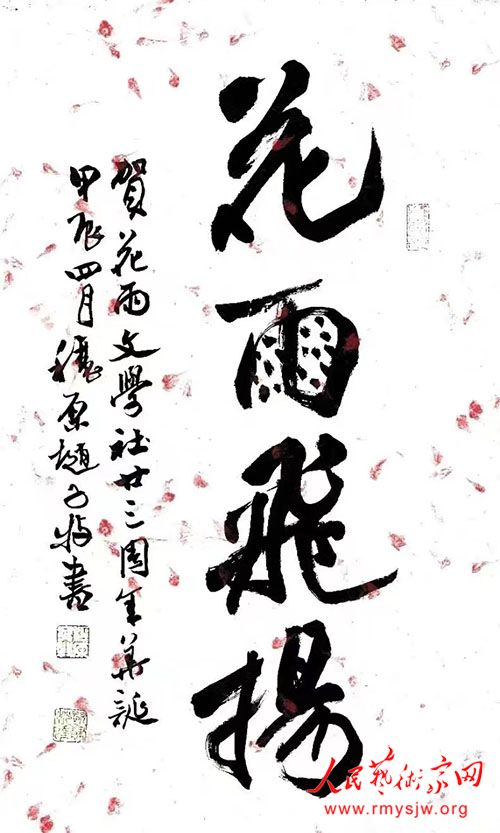 花雨飛揚
賀花雨文學社廿三周年華誕
甲辰四月穗原趙子牧書
人民藝術家网
www.rmysjw.org